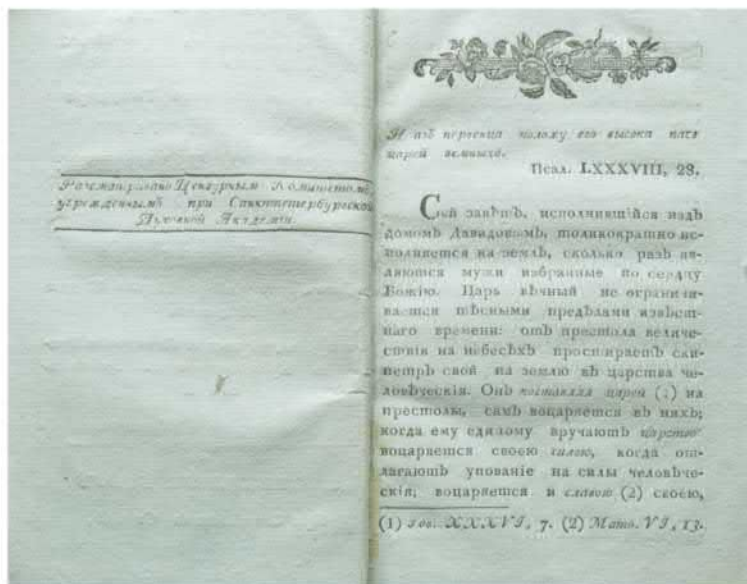 Разсматривано Цензурнымъ Комитетомъ,
учрежденнымъ при Санктпетербургской
Духовной Академіи.
И азъ первенца положу его высока паче
царей земныхъ.
Псал. LXXXVIII, 28.
Сей завѣтъ, исполнившійся надъ
домомъ Давидовымъ, толикократно ис-
полняется на землѣ, сколько разъ яв-
ляются мужи избранные по сердцу
Божію. Царь вѣчный не ограничи-
вается тѣсными предѣлами извѣст-
наго времени: отъ престола величе-
ствія на небесѣхъ простираетъ ски-
петръ свой на землю въ царства че-
ловѣческія. Онъ поставляя царей (1) на
престолы, самъ воцаряется въ нихъ;
когда ему единому вручаютъ царство
воцаряется своею силою, когда от-
лагаютъ упованіе на силы человѣче-
скія; воцаряется и славою (2) своею,
(1) Іов. XXXVI, 7. (2) Матѳ. VI, 13.